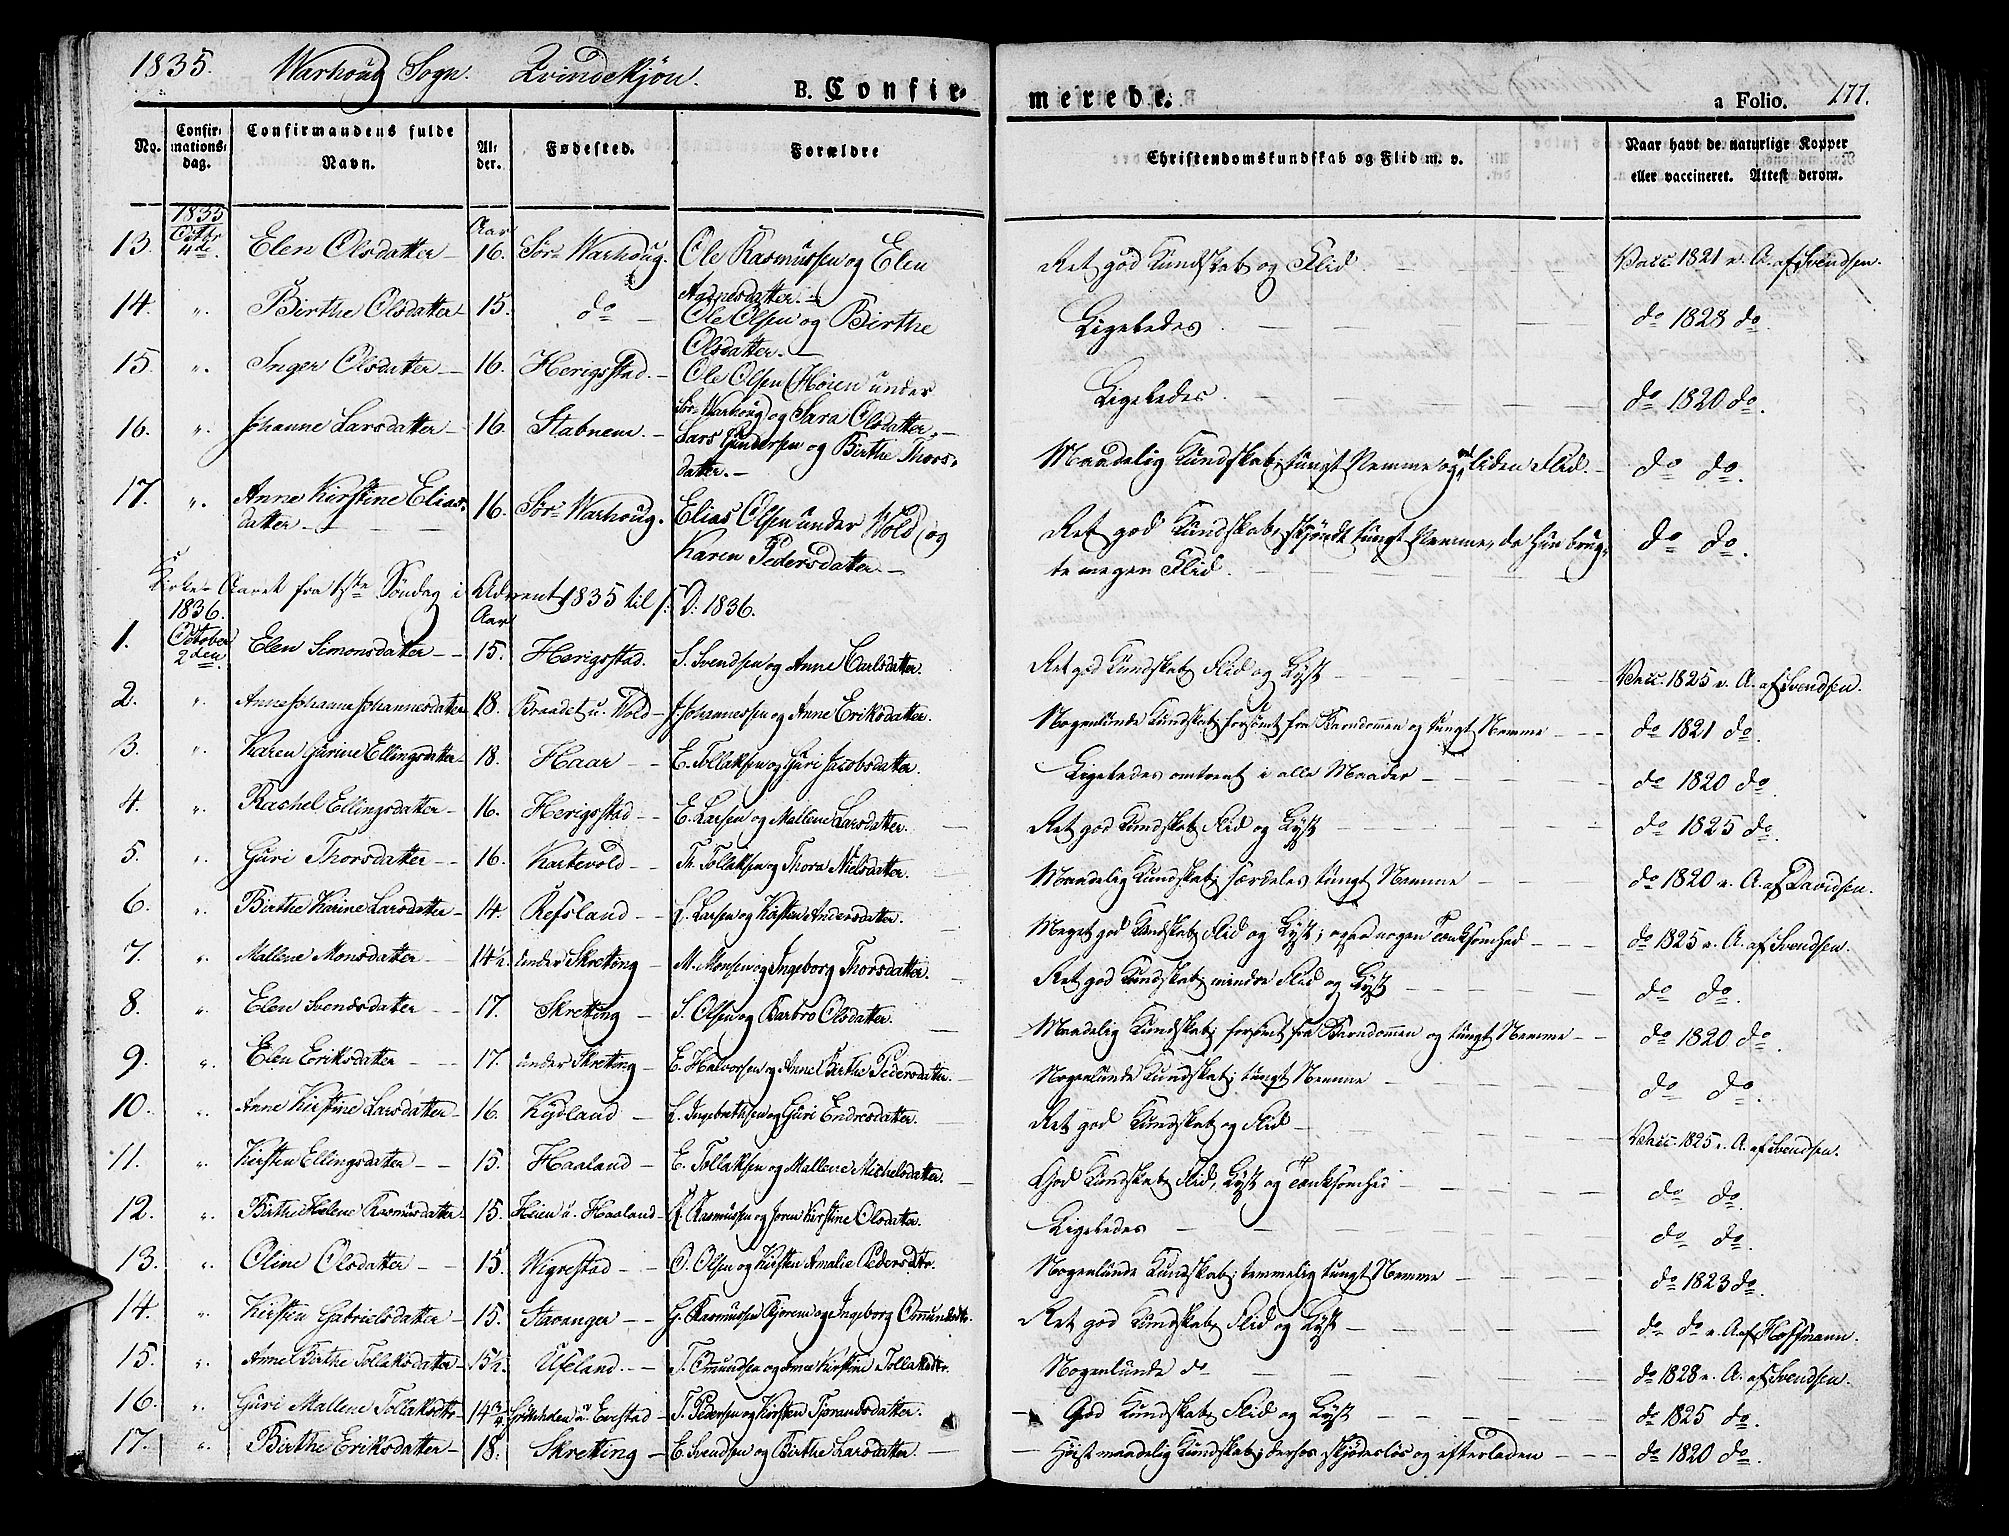 1835. Warhoug Sogn. Qvindekjøn. B. Confir-
merede. a Folio. 177.
No. Confirmationsdag. Confirmandens fulde Navn. Alder. Fødested. Forældre
Christendomskundskab og Flid m. v. Naar havt de naturlige Kopper eller vaccineret. Attest derom.
1835 Aar
13. Octbr 4de. Elen Olsdatter 16. Sør-Warhoug. Ole Rasmussen og Elen Agnesdatter. Ret god Kundskab og Flid. Vacc. 1821 e. A. af Svendsen.
14. ". Birthe Olsdatter 15. do Ole Olsen og Birthe Olsdatter. Ligeledes. do 1828 do.
15. ". Inger Olsdatter 16. Herigsstad. Ole Olsen Høien under Sør-Warhoug og Sara Olsdatter. Ligeledes. do 1820 do.
16. ". Johanne Larsdatter 16. Stabnem. Lars Gundersen og Birthe Thorsdatter. Maadelig Kundskab; tungt Nemme og liden Flid. do do.
17. ". Anne Kirstine Eliasdatter 16. Sør-Warhoug. Elias Olsen under Wold og Karen Pedersdatter. Ret god Kundskab, skjøndt tungt Nemme, da hun brugte megen Flid. do do.
Kirke-Aaret fra 1ste Søndag i Advent 1835 til 1. D. 1836.
1836. Aar
1. October 2den. Elen Simonsdatter 15. Herigsstad. S. Svendsen og Anne Carlsdatter. Ret god Kundskab, Flid og Lyst Vacc. 1825 e. A. af Svendsen.
2. ". Anne Johanne Johannesdatter 18. Braadet u. Wold J. Johannessen og Anne Eriksdatter. Nogenlunde Kundskab, forsømt fra Barndommen og tungt Nemme do 1821 do.
3. ". Karen Gurine Ellingsdatter 18. Haar E. Tollaksen og Guri Jacobsdatter. Ligeledes omtrent i alle Maader do 1820 do.
4. ". Rachel Ellingsdatter 16. Herigsstad E. Larsen og Mallene Larsdatter. Ret god Kundskab, Flid og Lyst do 1825 do.
5. ". Guri Thorsdatter 16. Kartevold Th. Tollaksen og Thora Nielsdatter. Maadelig Kundskab; særdeles tungt Nemme do 1820 e. A. af Davidsen.
6. ". Birthe Karine Larsdatter 14. Refsland L. Larsen og Kirsten Andersdatter. Meget god Kundskab, Flid og Lyst; ogsaa nogen Tænksomhed do 1825 e. A. af Svendsen.
7. ". Mallene Monsdatter 14½. under Skretting M. Monsen og Ingeborg Thorsdatter. Ret god Kundskab, mindre Flid og Lyst do do.
8. ". Elen Svendsdatter 17. Skretting S. Olsen og Barbro Olsdatter. Maadelig Kundskab; forsømt fra Barndommen og tungt Nemme do 1820 do.
9. ". Elen Eriksdatter 17. under Skretting E. Halvorsen og Anne Birthe Pedersdatter. Nogenlunde Kundskab; tungt Nemme do do.
10. ". Anne Kirstine Larsdatter 16. Kydland L. Ingebrethsen og Guri Endresdatter. Ret god Kundskab og Flid Vacc. 1825 e. A. af Svendsen.
11. ". Kirsten Ellingsdatter 15. Haaland E. Tollaksen og Mallene Michelsdatter. God Kundskab, Flid, Lyst og Tænksomhed do do.
12. ". Birthe Helene Rasmusdatter 15. Heien u. Haaland R. Rasmussen og Joren Kirstine Olsdatter. Ligeledes do do.
13. ". Oline Olsdatter 15. Wigrestad O. Olsen og Kirsten Amalie Pedersdtr. Nogenlunde Kundskab; temmelig tungt Nemme do 1823 do.
14. ". Kirsten Gabrielsdatter 15. Stavanger G. Rasmussen Bjorem og Ingeborg Omundsdtr. Ret god Kundskab, Flid og Lyst do do e. A. af Hoffmann.
15. ". Anne Birthe Tollaksdatter 15½. Ueland. T. Omundsen og Anne Kirstine Tollaksdtr. Nogenlunde do do 1828 e. A. af Svendsen.
16. ". Guri Mallene Tollaksdtr 14¾ u. Evestad T. Pedersen og Kirsten Tjorandsdatter. God Kundskab, Flid og Lyst do 1825 do.
17. ". Birthe Eriksdatter 18. Skretting E. Svendsen og Birthe Larsdatter. Høist maadelig Kundskab; derhos skjødesløs og efterladen do 1820 do.